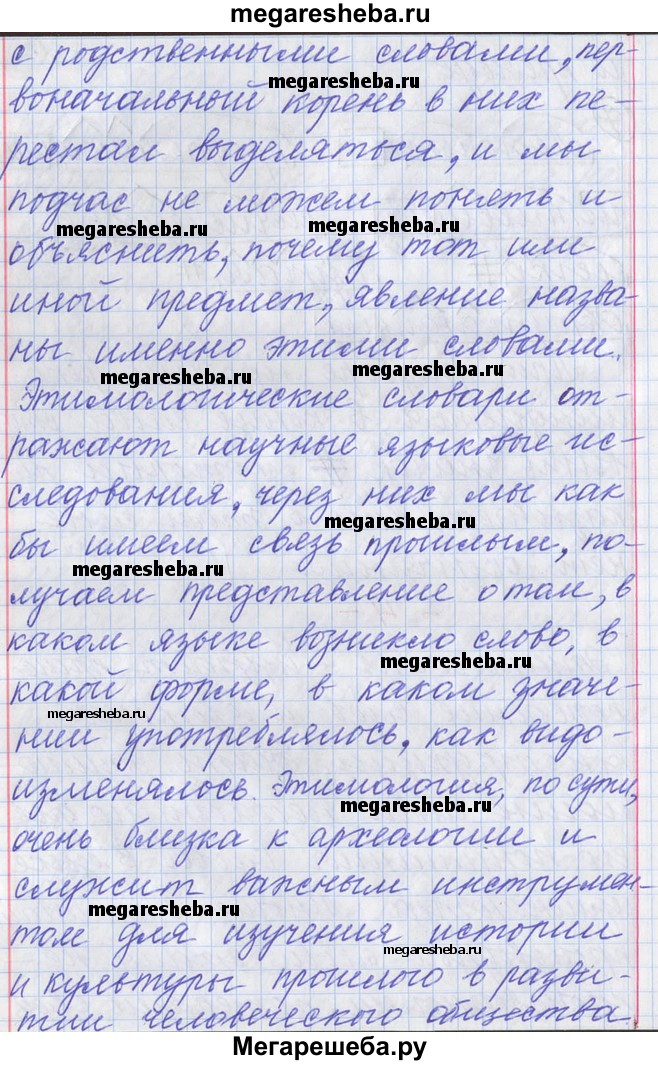 megaresheba.ru
с родственными словами, пер-
megaresheba.ru
воначальный корень в них пе-
рестал выделяться, и мы
подчас не можем понять и
megaresheba.ru megaresheba.ru
объяснить, почему тот или
иной предмет, явление назва-
ны именно этими словами.
megaresheba.ru megaresheba.ru
Этимологические словари от-
ражают научные языковые ис-
следования, через них мы как
megaresheba.ru
бы имеем связь прошлым, по-
megaresheba.ru
лучаем представление о том, в
каком языке возникло слово, в
megaresheba.ru
какой форме, в каком значе-
megaresheba.ru
нии употреблялось, как видо-
изменялось. Этимология, по сути,
megaresheba.ru
очень близка к археологии и
служит важным инструмен-
megaresheba.ru
том для изучения истории
megaresheba.ru
и культуры прошлого в разви-
тии человеческого общества.
Мегарешеба.ру